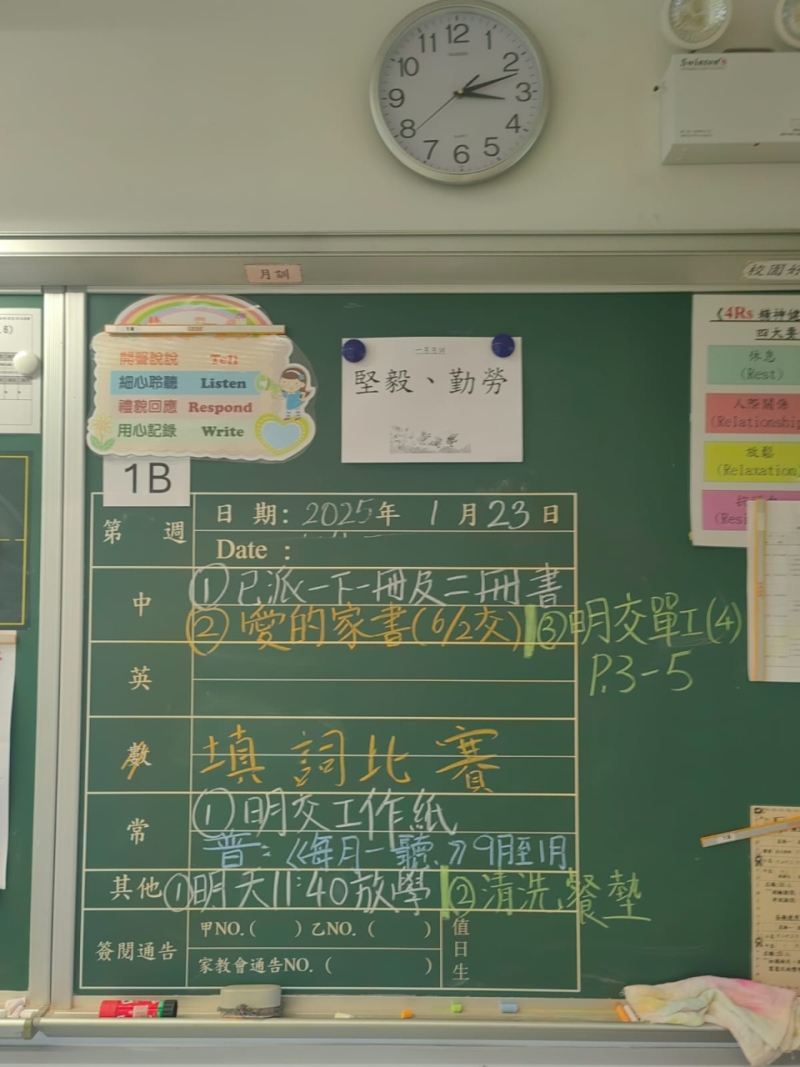 12 1 2 3 4 5 6 7 8 9 10 11
月訓
校園好
開聲說說 Tell
細心聆聽 Listen
禮貌回應 Respond
用心記錄 Write
1B
堅毅、勤勞
《4Rs 精神健
四大要
休息
(Rest)
人際關係
(Relationship
放鬆
(Relaxation)
第 週
日 期: 2025年 1月23日
Date :
中
①已派一下一冊及二冊書
②愛的家書(6/2交)
③明交單工(4)
P.3-5
英
數
填詞比賽
常
①明交工作紙
普:《每月一聽》9月至1月
其他
①明天11:40放學
②清洗餐墊
簽閱通告
甲NO.( ) 乙NO. ( )
家教會通告NO. ( )
值日生